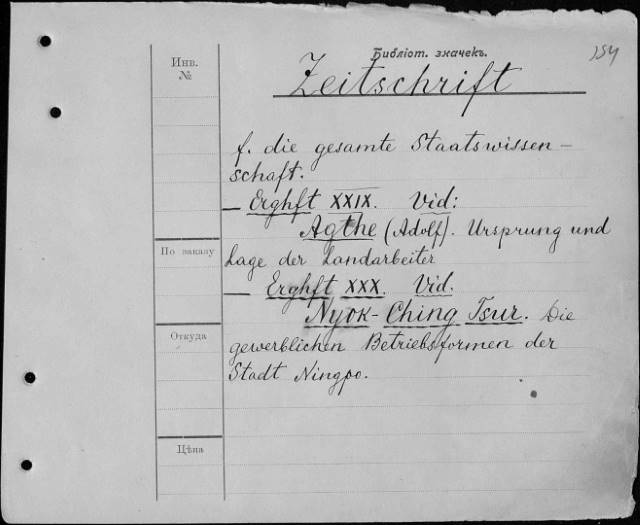 Библіот. значекъ.
254
Инв.
№
Zeitschrift
f. die gesamte Staatswissen-
schaft.
— Erghft XXIX. Vid:
Agthe (Adolf). Ursprung und
Lage der Landarbeiter
По заказу
— Erghft XXX. Vid.
Nyok-Ching Tsur. Die
Откуда
gewerblichen Betriebsformen der
Stadt Ningpo.
Цѣна